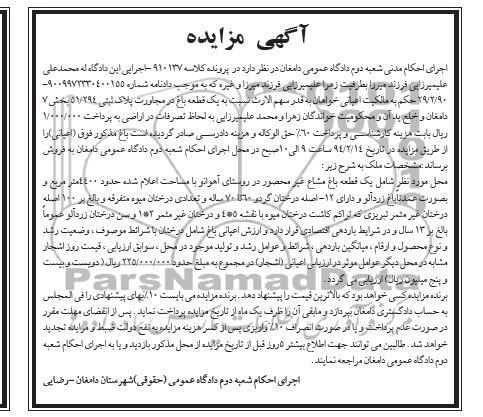 آگهی مزایده
اجرای احکام مدنی شعبه دوم دادگاه عمومی دامغان در نظر دارد در پرونده کلاسه ۹۱۰۱۳۷-اجرایی این دادگاه له محمدعلی
علیمیرزایی فرزند میرزا بطرفیت زهرا علیمیرزایی فرزند میرزا و غیره که به موجب دادنامه شماره ۹۰۰۹۹۷۲۳۳۰۴۰۰۱۵۵-
۲۹/۲/۹۰ حکم به مالکیت اعیانی خواهان به قدر سهم الارث نسبت به یک قطعه باغ در مجاورت پلاک ثبتی ۵۱/۲۹۴ بخش ۷
دامغان و خلع ید آن و محکومیت خواندگان زهرا و محمد علیمیرزایی به لحاظ تصرفات در اراضی به پرداخت ۱/۰۰۰/۰۰۰
ریال بابت هزینه کارشناسی و پرداخت ۶۰٪ حق الوکاله و هزینه دادرسی صادر گردیده است باغ مذکور فوق (اعیانی) را
از طریق مزایده در تاریخ ۹۴/۲/۱۴ ساعت ۹ الی ۱۰صبح در محل اجرای احکام شعبه دوم دادگاه عمومی دامغان به فروش
برساند :مشخصات ملک به شرح زیر :
محل مورد نظر شامل یک قطعه باغ مشاع غیر محصور در روستای آهوانو با مساحت اعلام شده حدود ۴۴۰۰متر مربع و
بصورت عمدتاًباغ زردآلو و دارای ۱۲- اصله درختان گردو ۶۰تا ۷۰ ساله و تعدادی درختان میوه متفرقه و بالغ بر ۱۰۰ اصله
درختان غیر مثمر تبریزی که تراکم کاشت درختان میوه با نقشه ۵*۴ و درختان غیر مثمر ۲*۱ و سن درختان زردآلو عموماً
بالغ بر ۱۳ سال و در شرایط باردهی اقتصادی قرار دارد و ارزش اعیانی باغ شامل درختان با شرائط موصوف ، وضعیت رشد
و نوع محصول و ارقام ، میانگین باردهی ، شرائط و عوامل رشد و تولید موجود در محل ، سوابق ارزیابی ، قیمت روز اشجار
مشابه در محل دیگر عوامل موثر در ارزیابی اعیانی (اشجار) در مجموع به مبلغ حدود ۲۲۵/۰۰۰/۰۰۰ ریال ( دویست و بیست
و پنج میلیون ریال) ارزیابی می گردد .
برنده مزایده کسی خواهد بود که بالاترین قیمت را پیشنهاد دهد . برنده مزایده می بایست ۱۰٪بهای پیشنهادی را فی المجلس
به حساب دادگستری دامغان بپردازد و مابقی آن را ظرف یک ماه از تاریخ مزایده پرداخت نماید . پس از انقضای مهلت مقرر
در صورت عدم پرداخت و یا در صورت انصراف ۱۰٪ واریزی پس از کسر هزینه مزایده به نفع دولت ضبط و مزایده تجدید
خواهد شد . طالبین می توانند جهت اطلاع بیشتر ۵روز قبل از تاریخ مزایده از محل مذکور بازدید و یا به اجرای احکام شعبه
دوم دادگاه عمومی دامغان مراجعه نمایند .
اجرای احکام شعبه دوم دادگاه عمومی (حقوقی)شهرستان دامغان -رضایی
ParsNamadData